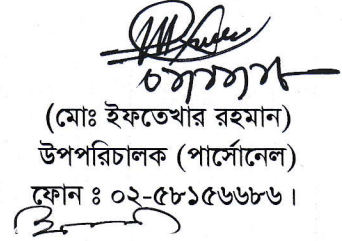 (মোঃ ইফতেখার রহমান)
উপপরিচালক (পার্সোনেল)
ফোন ঃ ০২-৫৮১৫৬৬৮৬।